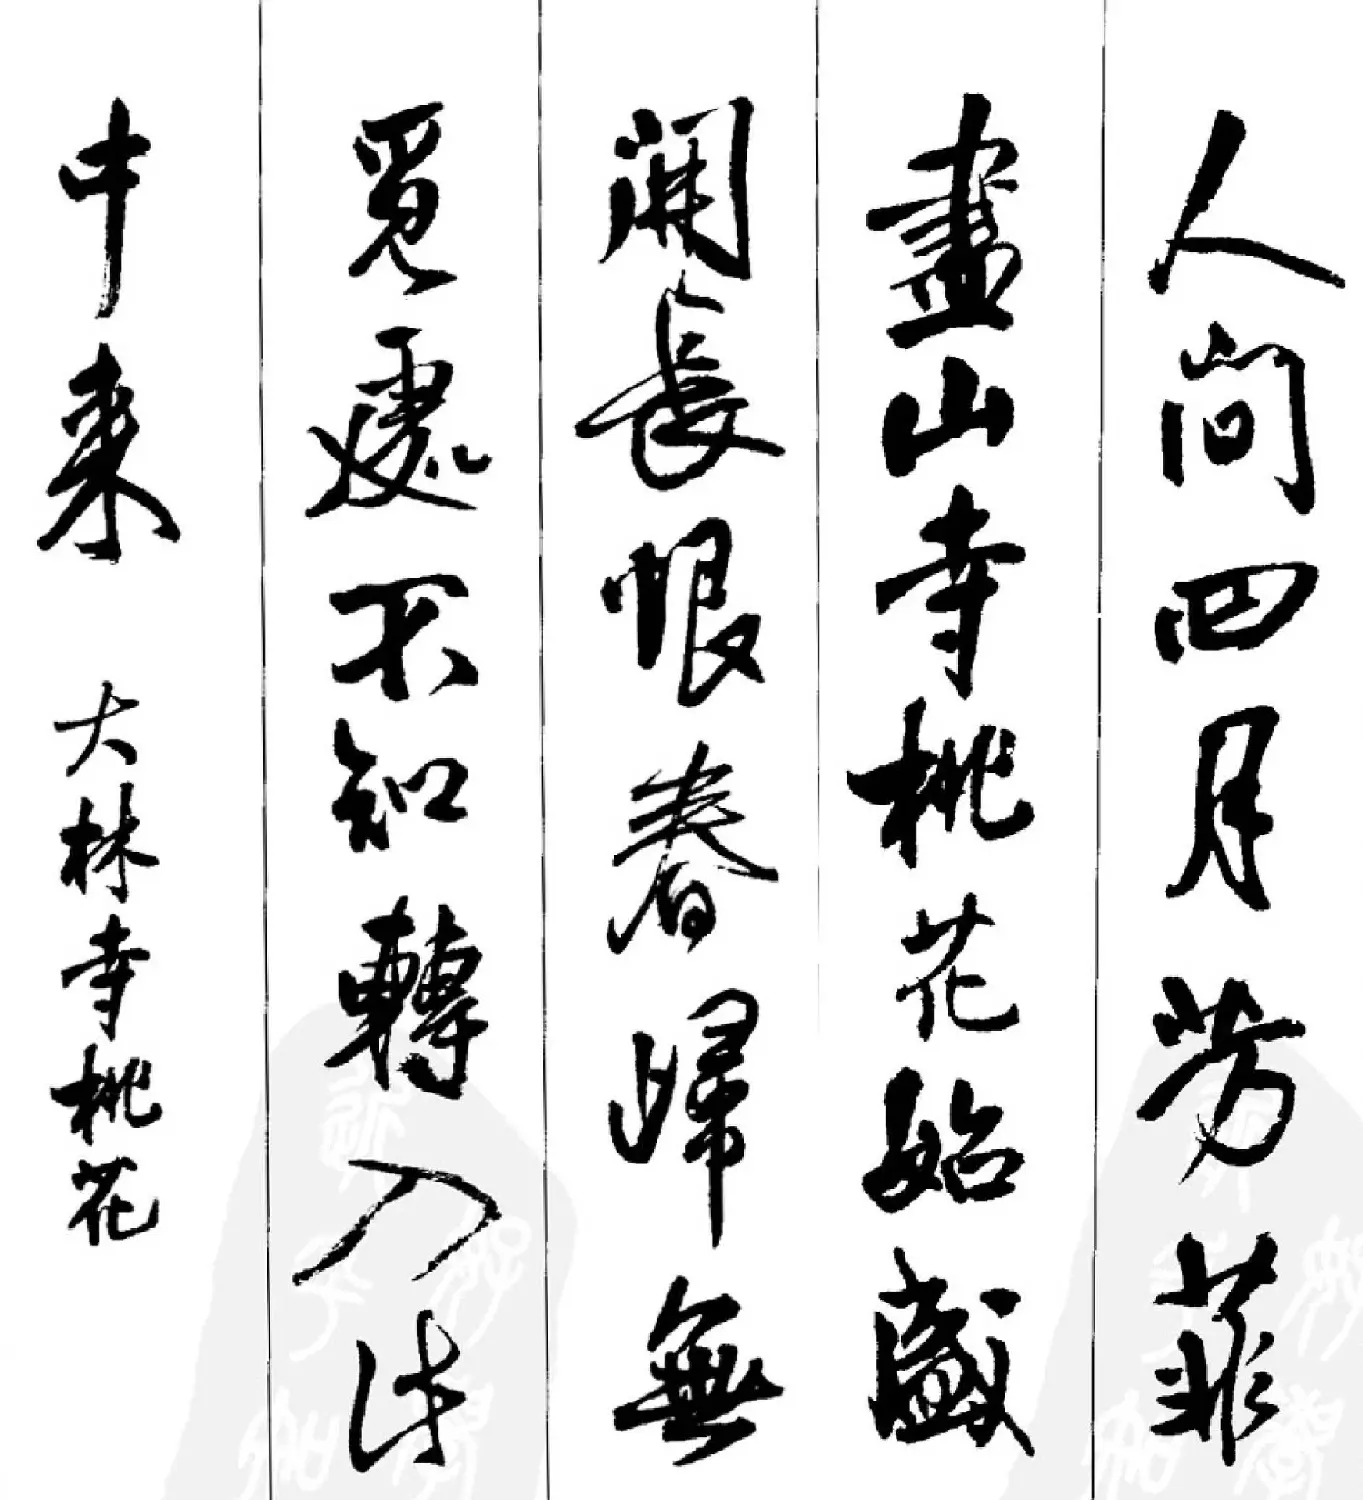 人間四月芳菲
盡山寺桃花始盛
開長恨春歸無
覓處不知轉入此
中來 大林寺桃花